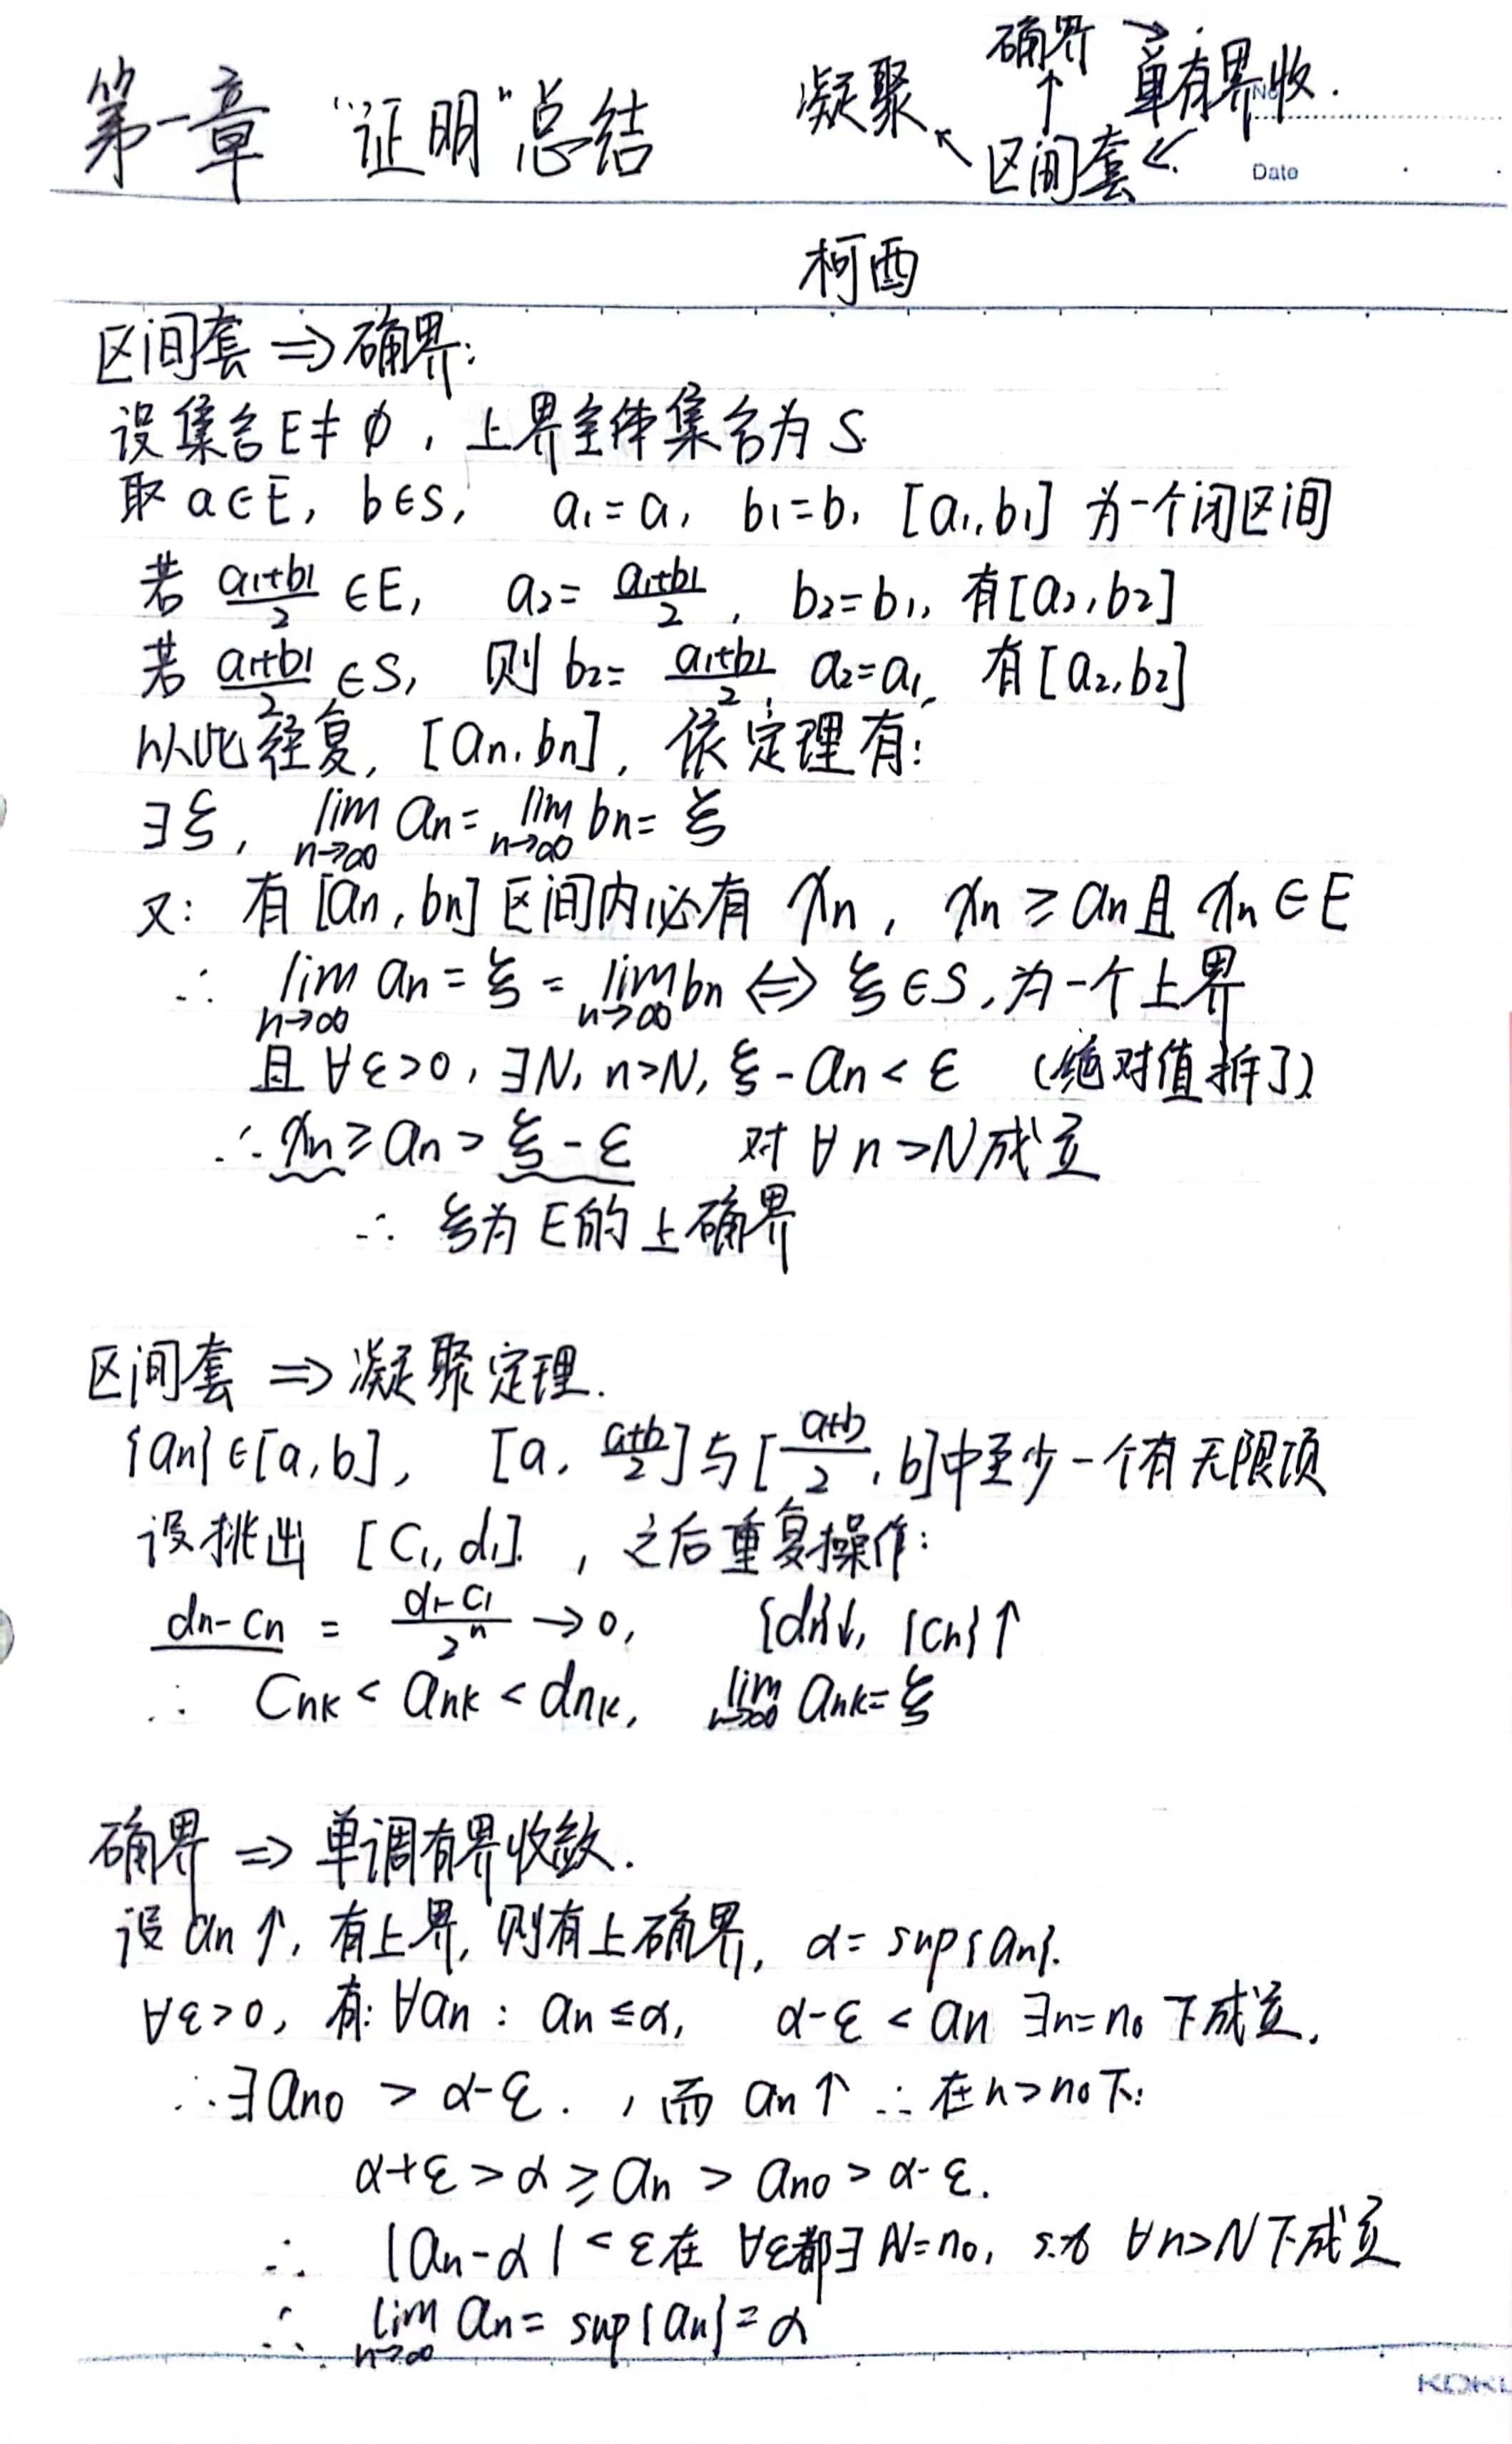 第一章 "证明"总结
凝聚 ↖ 区间套 ↑ 确界 → 单有界收. ⇙
No.
Date
柯西
区间套 ⇒ 确界:
设集合E≠φ, 上界全体集合为S.
取 a∈E, b∈S, a₁=a, b₁=b, [a₁,b₁] 为一个闭区间
若 (a₁+b₁)/2 ∈E, a₂= (a₁+b₁)/2, b₂=b₁, 有[a₂,b₂]
若 (a₁+b₁)/2 ∈S, 则 b₂= (a₁+b₁)/2, a₂=a₁, 有[a₂,b₂]
从此往复, [an,bn], 依定理有:
∃ξ, lim n→∞ an = lim n→∞ bn = ξ
又: 有[an,bn]区间内必有 xn, xn ≥ an 且 xn ∈ E
∴ lim n→∞ an = ξ = lim n→∞ bn ⇔ ξ∈S, 为一个上界
且 ∀ε>0, ∃N, n>N, ξ-an<ε (绝对值拆了)
∴ xn ≥ an > ξ-ε 对 ∀n>N成立
∴ ξ为E的上确界
区间套 ⇒ 凝聚定理.
{an}∈[a,b], [a, (a+b)/2]与[(a+b)/2, b]中至少一个有无限项
设挑出 [C₁,d₁], 之后重复操作:
dn-cn = (d₁-c₁)/2ⁿ → 0, {dn}↓, {cn}↑
∴ Cnk < ank < dnk, lim n→∞ ank=ξ
确界 ⇒ 单调有界收敛.
设 an↑, 有上界, 则有上确界, α= sup{an}.
∀ε>0, 有: ∀an : an≤α, α-ε < an ∃n=n₀ 下成立,
∴∃an₀ > α-ε. , 而 an↑ ∴在n>n₀下:
α+ε > α ≥ an > an₀ > α-ε.
∴ |an-α| < ε在 ∀ε都∃ N=n₀, s.t ∀n>N下成立
∴ lim n→∞ an = sup{an} = α